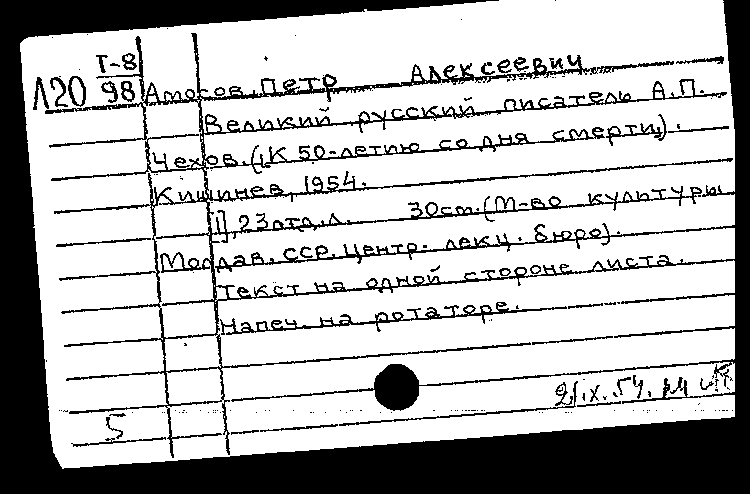 Т-8
Л20 98 Амосов, Петр Алексеевич
Великий русский писатель А.П.
Чехов. (К 50-летию со дня смерти).
Кишинев, 1954.
[1], 23 отд. л. 30 см. (М-во культуры
Молдав. ССР. Центр. лекц. бюро).
Текст на одной стороне листа.
Напеч. на ротаторе.
21.IX.54.
5